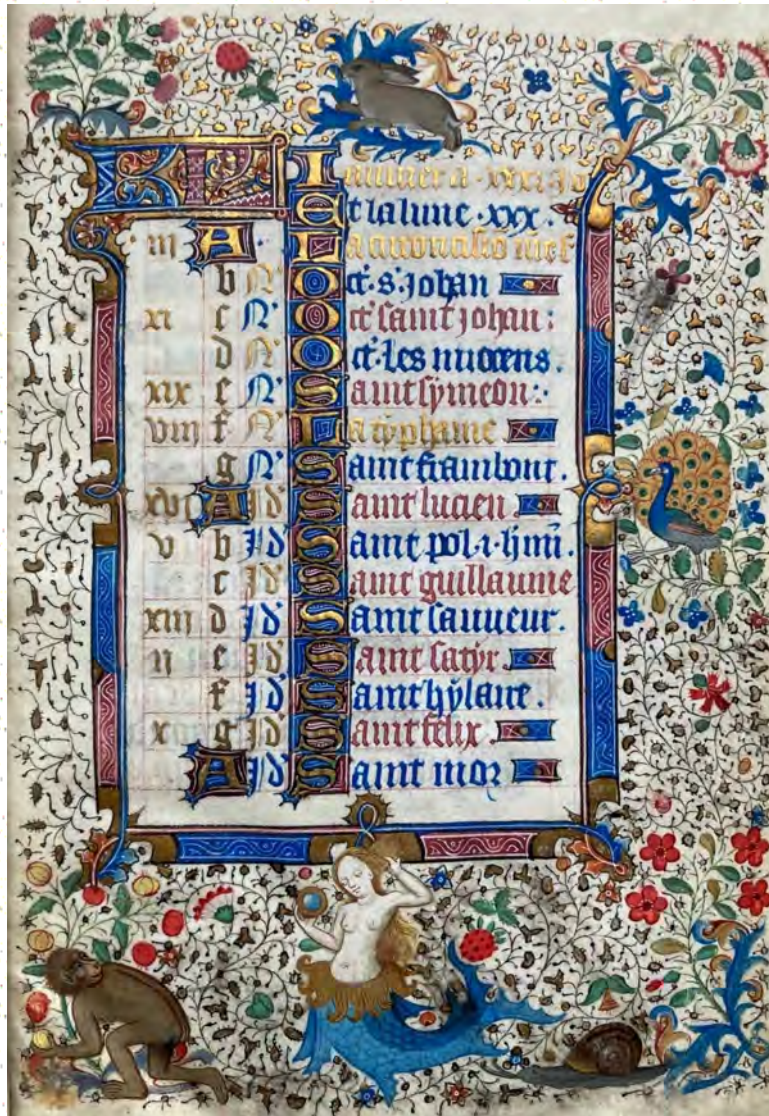 KL Januier a .xxxi. Jo
Et la lune .xxx.
iii A La circoncision
b N' Oct. s. Johan
xi c N' Oct' saint Johan:
d N' Oct. les
xix e N' Saint symeon:
viii f N' La typhaine
g N' Saint frambout.
xvi A Jd' Saint lucien
v b Jd' Saint pol .i. hmi.
c Jd' Saint guillaume
xiii d Jd' Saint sauueur.
ii e Jd' Saint satyr
f Jd' Saint hylaire.
x g Jd' Saint felix.
A Jd' Saint mor